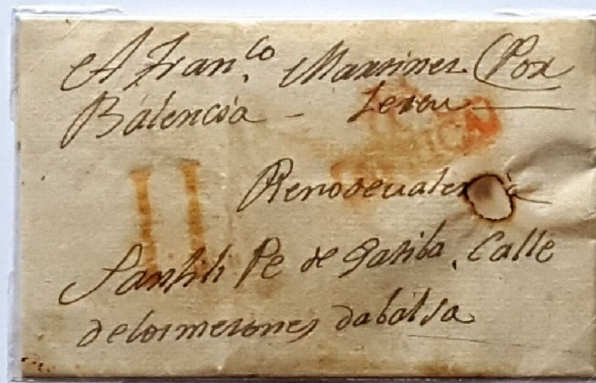 A Fran.co Martines Por
Balencia -
Reno de valen a
San fili Pe de Jatiba, Calle
de los mesones dabalsa
11